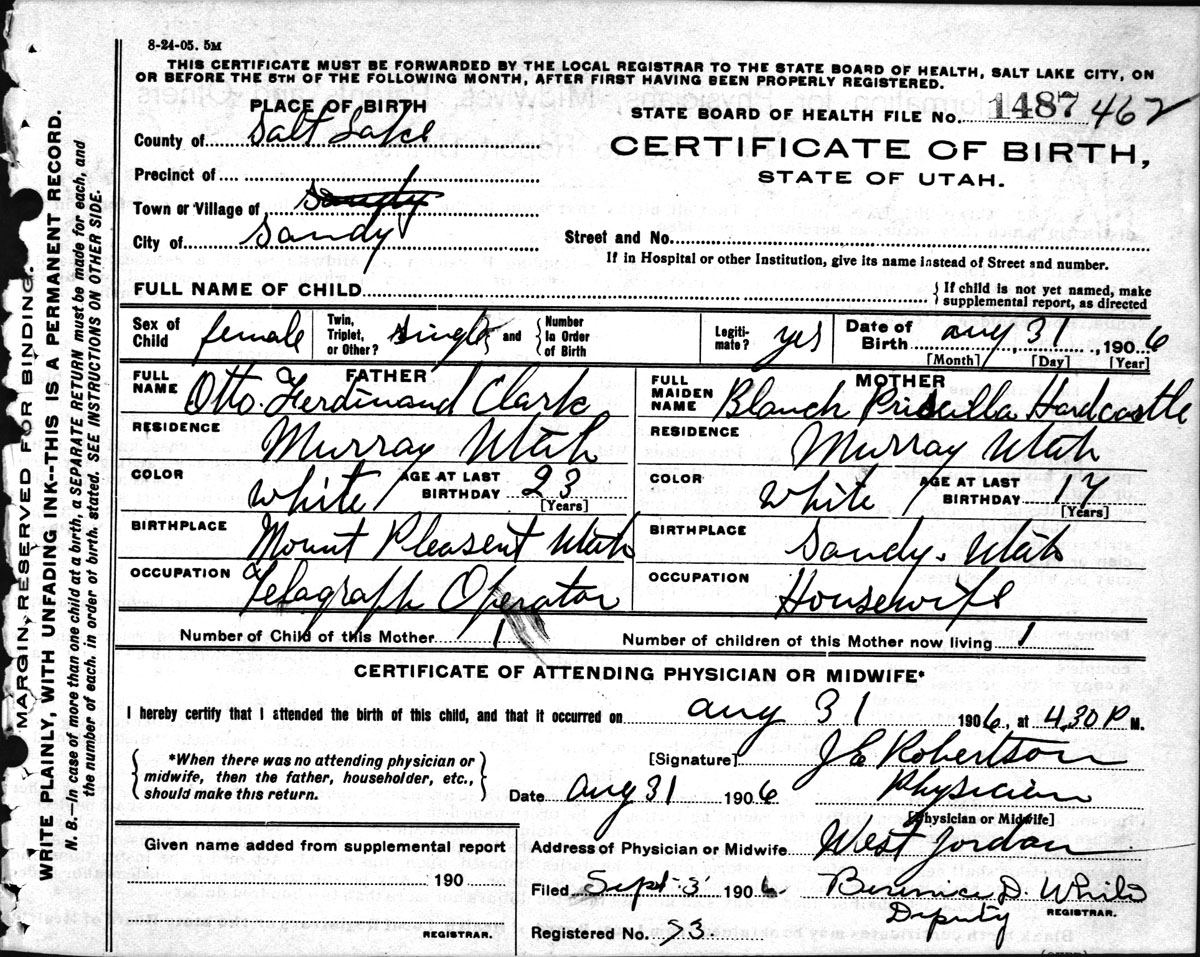 8-24-05. 5M
THIS CERTIFICATE MUST BE FORWARDED BY THE LOCAL REGISTRAR TO THE STATE BOARD OF HEALTH, SALT LAKE CITY, ON
OR BEFORE THE 5TH OF THE FOLLOWING MONTH, AFTER FIRST HAVING BEEN PROPERLY REGISTERED.
PLACE OF BIRTH
STATE BOARD OF HEALTH FILE No. 1487 462
County of Salt Lake
CERTIFICATE OF BIRTH,
STATE OF UTAH.
Precinct of
Town or Village of Sandy
City of Sandy
Street and No.
If in Hospital or other Institution, give its name instead of Street and number.
FULL NAME OF CHILD
If child is not yet named, make
supplemental report, as directed
Sex of Child female Twin, Triplet, or Other? Single and Number In Order of Birth Legiti-mate? yes Date of Birth Aug 31, 1906
[Month] [Day] [Year]
FATHER
MOTHER
FULL NAME Otto Ferdinand Clark
FULL MAIDEN NAME Blanch Priscilla Hardcastle
RESIDENCE Murray Utah
RESIDENCE Murray Utah
COLOR white AGE AT LAST BIRTHDAY 23 [Years]
COLOR white AGE AT LAST BIRTHDAY 17 [Years]
BIRTHPLACE Mount Pleasent Utah
BIRTHPLACE Sandy. Utah
OCCUPATION Telagraph Operator
OCCUPATION Housewife
Number of Child of this Mother 1 Number of children of this Mother now living 1
CERTIFICATE OF ATTENDING PHYSICIAN OR MIDWIFE*
I hereby certify that I attended the birth of this child, and that it occurred on Aug 31 1906, at 4.30 P M.
*When there was no attending physician or
midwife, then the father, householder, etc.,
should make this return.
[Signature] J E Robertson
Date Aug 31 1906 Physician
[Physician or Midwife]
Address of Physician or Midwife West Jordan
Given name added from supplemental report
190
REGISTRAR.
Filed Sept 3 1906 D. White
REGISTRAR.
Deputy
Registered No. 53
MARGIN RESERVED FOR BINDING.
WRITE PLAINLY, WITH UNFADING INK--THIS IS A PERMANENT RECORD.
N. B.—In case of more than one child at a birth, a SEPARATE RETURN must be made for each, and
the number of each, in order of birth, stated. SEE INSTRUCTIONS ON OTHER SIDE.